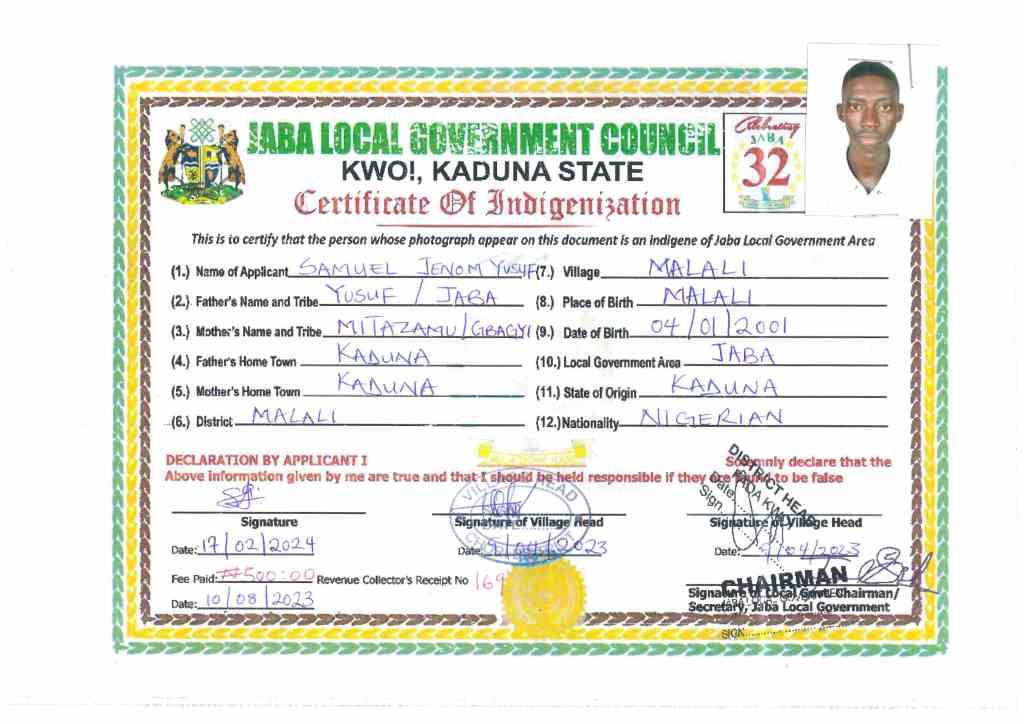 Celebrating
JABA
32
JABA LOCAL GOVERNMENT COUNCIL
KWO!, KADUNA STATE
Certificate Of Indigenization
This is to certify that the person whose photograph appear on this document is an indigene of Jaba Local Government Area
(1.) Name of Applicant SAMUEL JENOM YUSUF (7.) Village MALALI
(2.) Father's Name and Tribe YUSUF / JABA (8.) Place of Birth MALALI
(3.) Mother's Name and Tribe MITAZAMU/GBAGYI (9.) Date of Birth 04/01/2001
(4.) Father's Home Town KADUNA (10.) Local Government Area JABA
(5.) Mother's Home Town KADUNA (11.) State of Origin KADUNA
(6.) District MALALI (12.) Nationality NIGERIAN
DECLARATION BY APPLICANT I Solemnly declare that the
Above information given by me are true and that I should be held responsible if they are found to be false
VILLAGE HEAD
DISTRICT HEAD
Date
Sign.
Signature Signature of Village Head Signature of Village Head
Date: 17/02/2024 Date: /04/2023 Date: /04/2023
Fee Paid: ₦500:00 Revenue Collector's Receipt No 169
CHAIRMAN
Signature of Local Govt. Chairman/
Date: 10/08/2023 Secretary, Jaba Local Government
SIGN